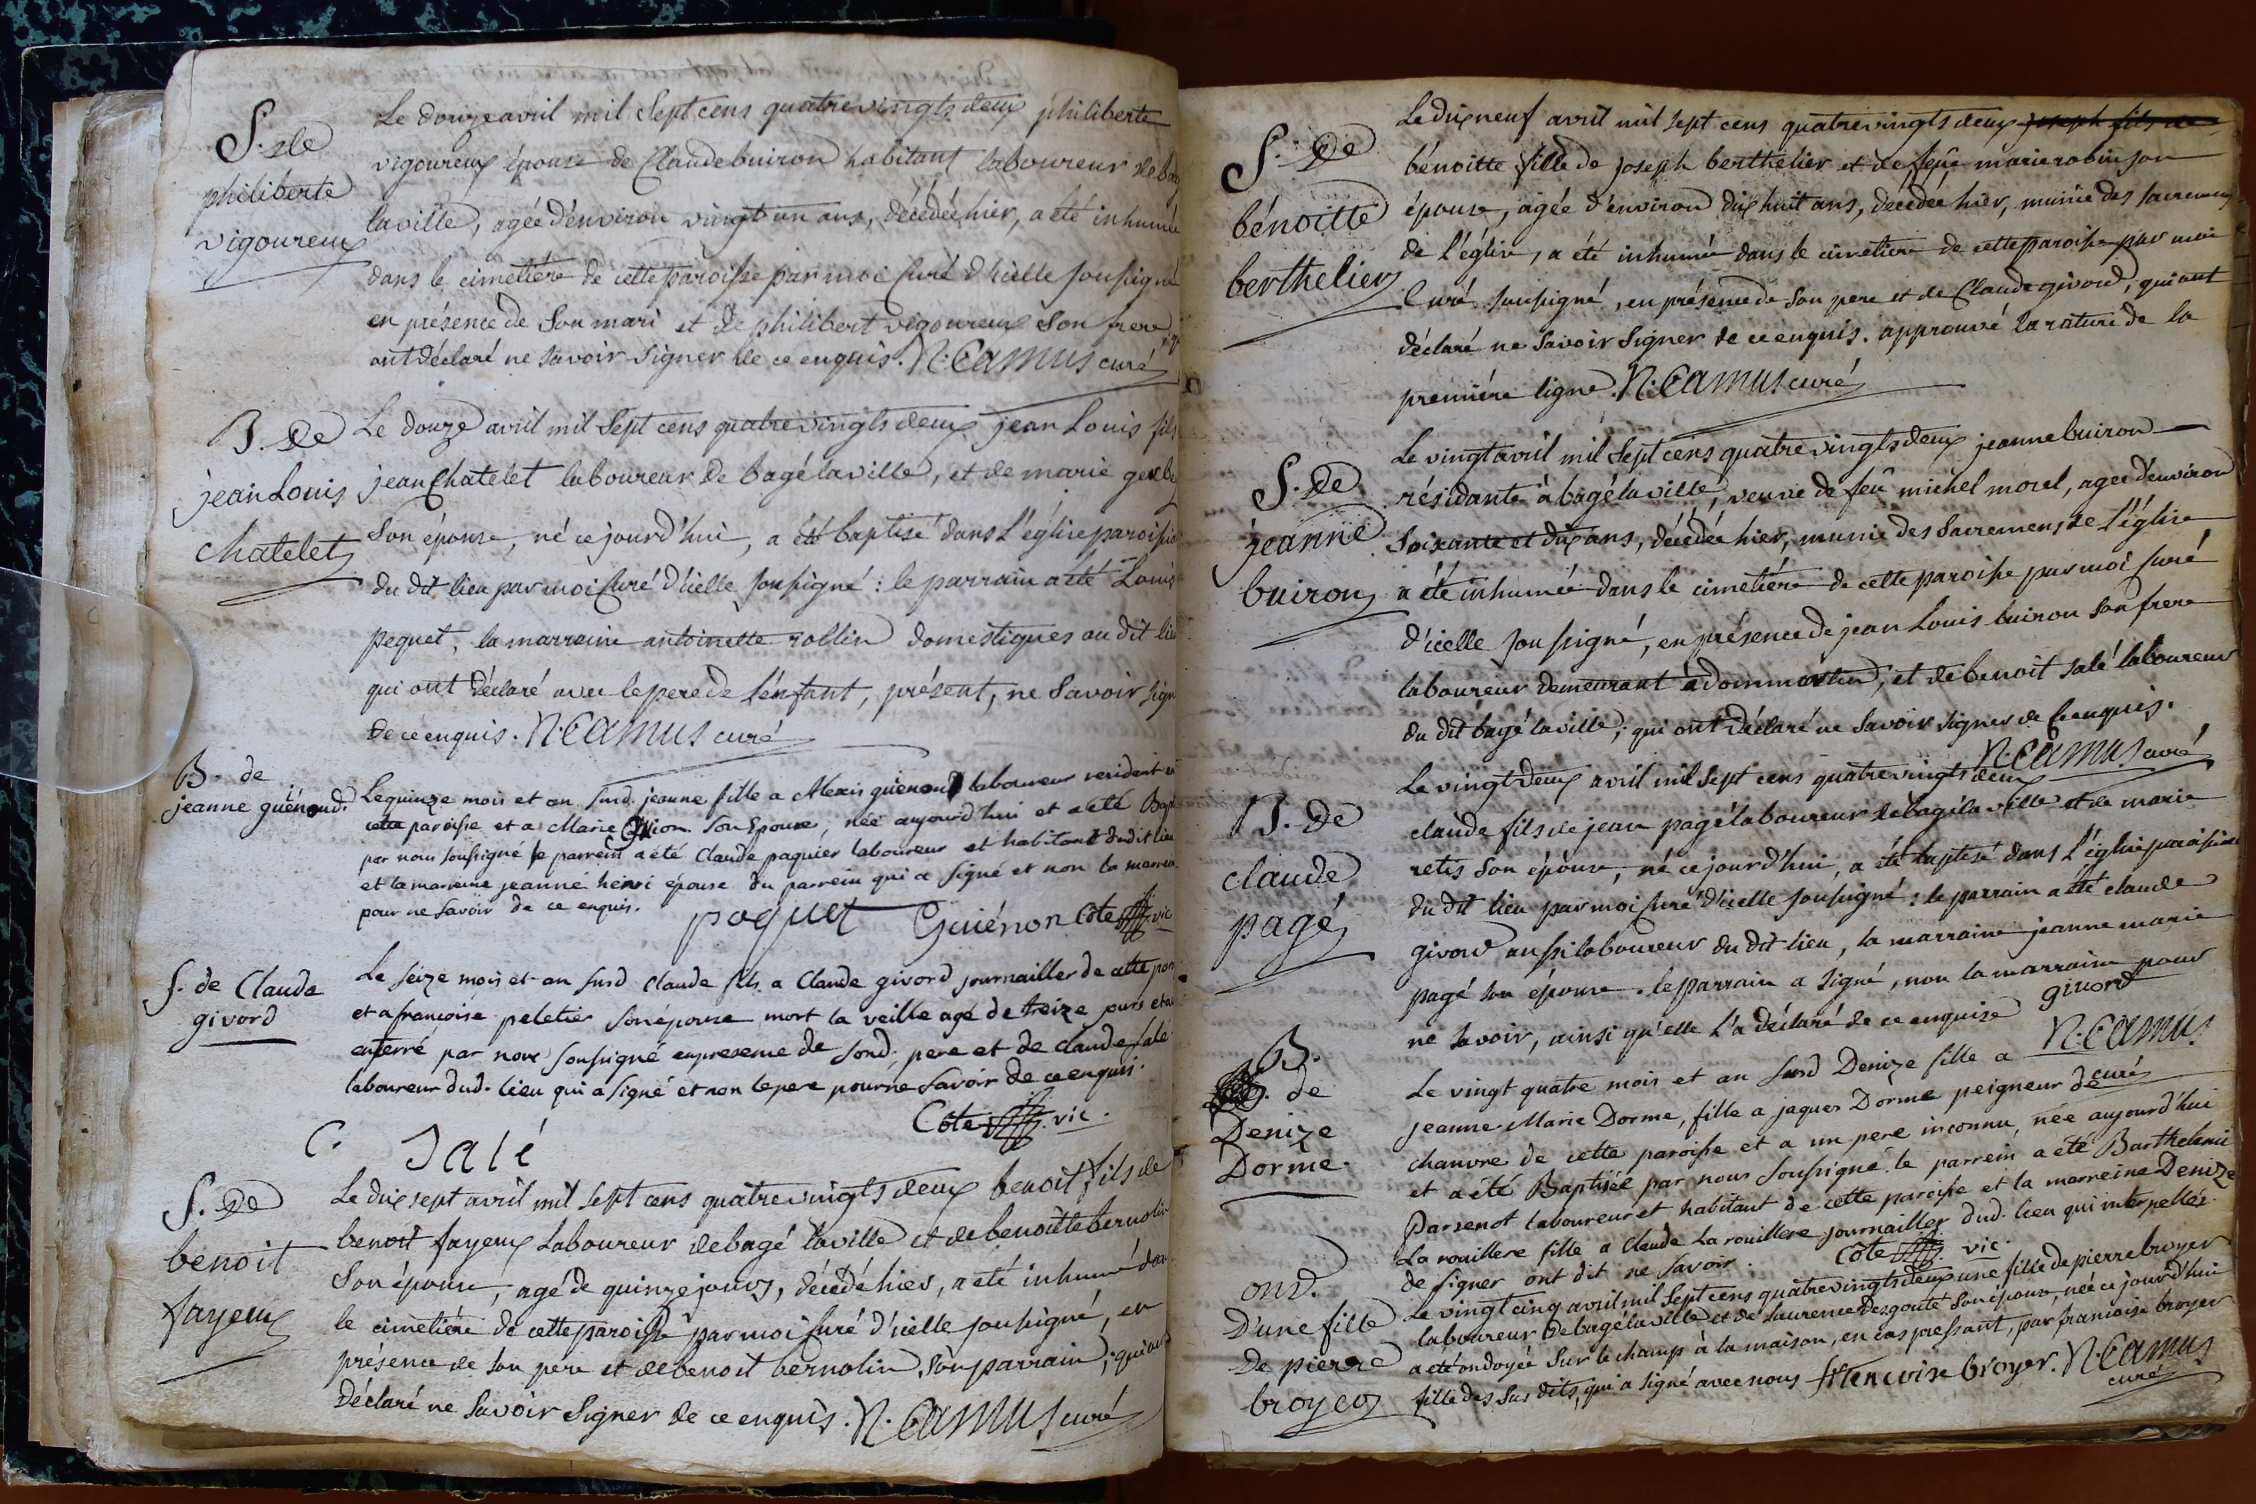 S. de
philiberte
vigoureux
Le douze avril mil Sept cens quatre vingts deux philiberte
vigoureux épouse de Claude buiron habitant laboureur de bagé
la ville, agée d'énviron vingt un ans, décédée hier, a été inhumée
dans le cimetiére de cette paroisse par moi Curé d'icelle soussigné
en présence de Son mari et de philibert vigoureux Son frere qui
ont déclaré ne savoir signer de ce enquis. N. Camus curé
B. de
jean Louis
chatelet
Le douze avril mil Sept cens quatre vingts deux jean Louis fils
jean Chatelet laboureur de bagé la ville, et de marie
Son épouse, né ce jourd'hui, a été baptisé dans l'église paroissi
du dit lieu par moi Curé d'icelle soussigné : le parrain a été Louis
pequet, la marraine antoinette rollin domestiques au dit lieu
qui ont déclaré avec le pere de l'énfant, présent, ne Savoir sign
de ce enquis. N. Camus curé
B. de
jeanne guénond.
Le quinze mois et an surd. jeanne fille a Alexis guénond laboureur resident en
cette paroisse et a Marie Guion Son Epouse, née aujourd'hui et a été Bapt
par nous soussigné le parrein a été Claude paquier laboureur et habitant dudit lieu
et la marreine jeanne henri épouse du parrein qui a signé et non la marrei
pour ne Savoir de ce enquis.
poquet Guiénon Cote vic
S. de Claude
givord
Le seize mois et an surd Claude fils a Claude givord journailler de cette par
et a françoise peletier son épouse mort la veille agé de treize jours et a
enterré par nous soussigné en presence de sond. pere et de claude salé
laboureur dud. lieu qui a signé et non le pere pour ne Savoir de ce enquis.
Cote vic.
C. Salé
S. de
benoit
fayeux
Le dix sept avril mil Sept cens quatre vingts deux benoit, fils de
benoit fayeux Laboureur de bagé la ville et de benoitte bernolin
Son épouse, agé de quinze jours, décédé hier, a été inhumé dans
le cimetiére de cette paroisse par moi Curé d'icelle soussigné, en
présence de son pere et de benoit bernolin, Son parrain, qui ont
déclaré ne Savoir Signer de ce enquis. N. Camus curé
S. de
bénoitte
berthelier
Le dix neuf avril mil sept cens quatre vingts deux joseph fils de
bénoitte fille de joseph berthelier et de feüe marie robin son
épouse, agée d'environ dix huit ans, décédée hier, munie des sacremens
de l'église, a été inhumée dans le cimetiere de cette paroisse par moi
Curé soussigné, en présence de Son pere et de Claude givord, qui ont
déclaré ne Savoir Signer de ce enquis. approuvé la rature de la
premiére ligne. N. Camus curé
S. de
jeanne
buiron
Le vingt avril mil Sept cens quatre vingts deux jeanne buiron
résidante à bagé la ville, veuve de feû michel morel, agée d'environ
Soixante et dix ans, décédée hier, munie des Sacremens de l'église
a été inhumée dans le cimetiére de cette paroisse par moi Curé
d'icelle soussigné, en présence de jean Louis buiron Son frere
laboureur demeurant à dommartin, et de benoit salé laboureur
du dit bagé la ville, qui ont déclaré ne Savoir signer de ce enquis.
N. Camus curé
B. de
claude
pagé
Le vingt deux avril mil Sept cens quatre vingts deux
claude fils de jean pagé laboureur de bagé la ville et de marie
retis Son épouse, né ce jourd'hui, a été baptisé dans l'église paroissiale
du dit lieu par moi Curé d'icelle soussigné : le parrain a été claude
givord aussi laboureur du dit lieu, la marraine jeanne marie
pagé son épouse. le parrain a signé, non la marraine pour
ne savoir, ainsi qu'elle l'a déclaré de ce enquise givord
N. Camus
curé
B.
de
Denize
Dorme.
Le vingt quatre mois et an surd Denize fille a
jeanne Marie Dorme, fille a jaques Dorme peigneur de
chanvre de cette paroisse et a un pere inconnu, née aujourd'hui
et a été Baptisée par nous soussigné. le parrein a été Barthelemie
Parsenot laboureur et habitant de cette paroisse et la marreine Denize
La rouillere fille a Claude La rouillere journailler dud. lieu qui interpellés
de signer ont dit ne savoir. Cote vic.
ond.
D'une fille
De pierre
broyer
Le vingt cinq avril mil Sept cens quatre vingts deux une fille de pierre broyer
laboureur de bagé la ville et de laurence desgouté Son épouse, née ce jourd'hui
a été ondoyée Sur le champ à la maison, en cas pressant, par françoise broyer
fille des Sus dits, qui a signé avec nous francoise broyer. N. Camus
curé